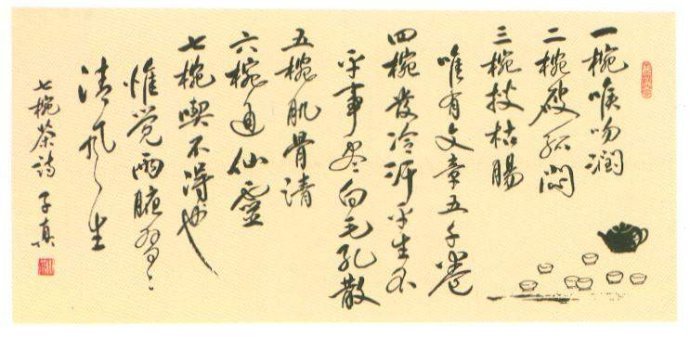 一椀喉吻潤
二椀破孤悶
三椀搜枯腸
唯有文章五千卷
四椀發冷汗平生不
平事尽向毛孔散
五椀肌骨清
六椀通仙靈
七椀喫不得也
惟覺兩腋習々
清風生
七椀茶詩 子真